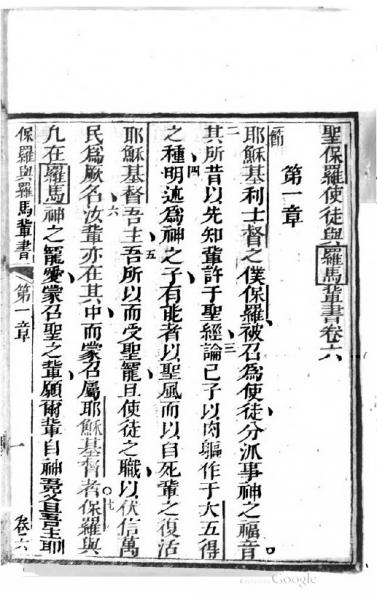 聖保羅使徒與羅馬輩書卷六
第一章
節
耶穌基利士督之僕保羅被召為使徒分派事神之福音
二其所昔以先知輩許于聖經三論已子以肉軀作于大五得
之種四明述為神之子有能者以聖風而以自死輩之復活
耶穌基督吾主五吾所以而受聖寵且使徒之職以伏信萬
民為厥名六汝輩亦在其中而蒙召屬耶穌基督者七保羅與
凡在羅馬神之寵愛蒙召聖之輩願爾輩自神吾父且吾主耶
保羅與羅馬輩書 第一章 一 卷六
Google